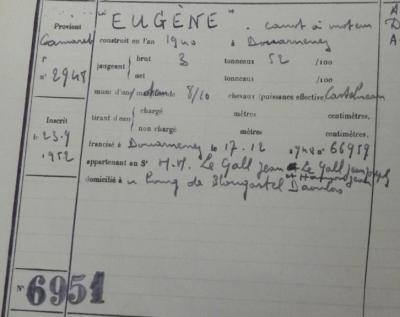 Provient
Camaret
F°
n° 2948
Inscrit
le 25.9
1952
N° 6951
"EUGÈNE". canot à moteur
construit en l'an 1940 à Douarnenez
jaugeant brut 3 tonneaux 52 /100
net tonneaux /100
muni d'un 8/10 chevaux (puissance effective)
tirant d'eau chargé mètres centimètres,
non chargé mètres centimètres.
francisé à Douarnenez le 17.12 n° 66959
appartenant au Sr M.M. Le Gall Jean Le Gall
domicilié à bourg de Plougastel Daoulas